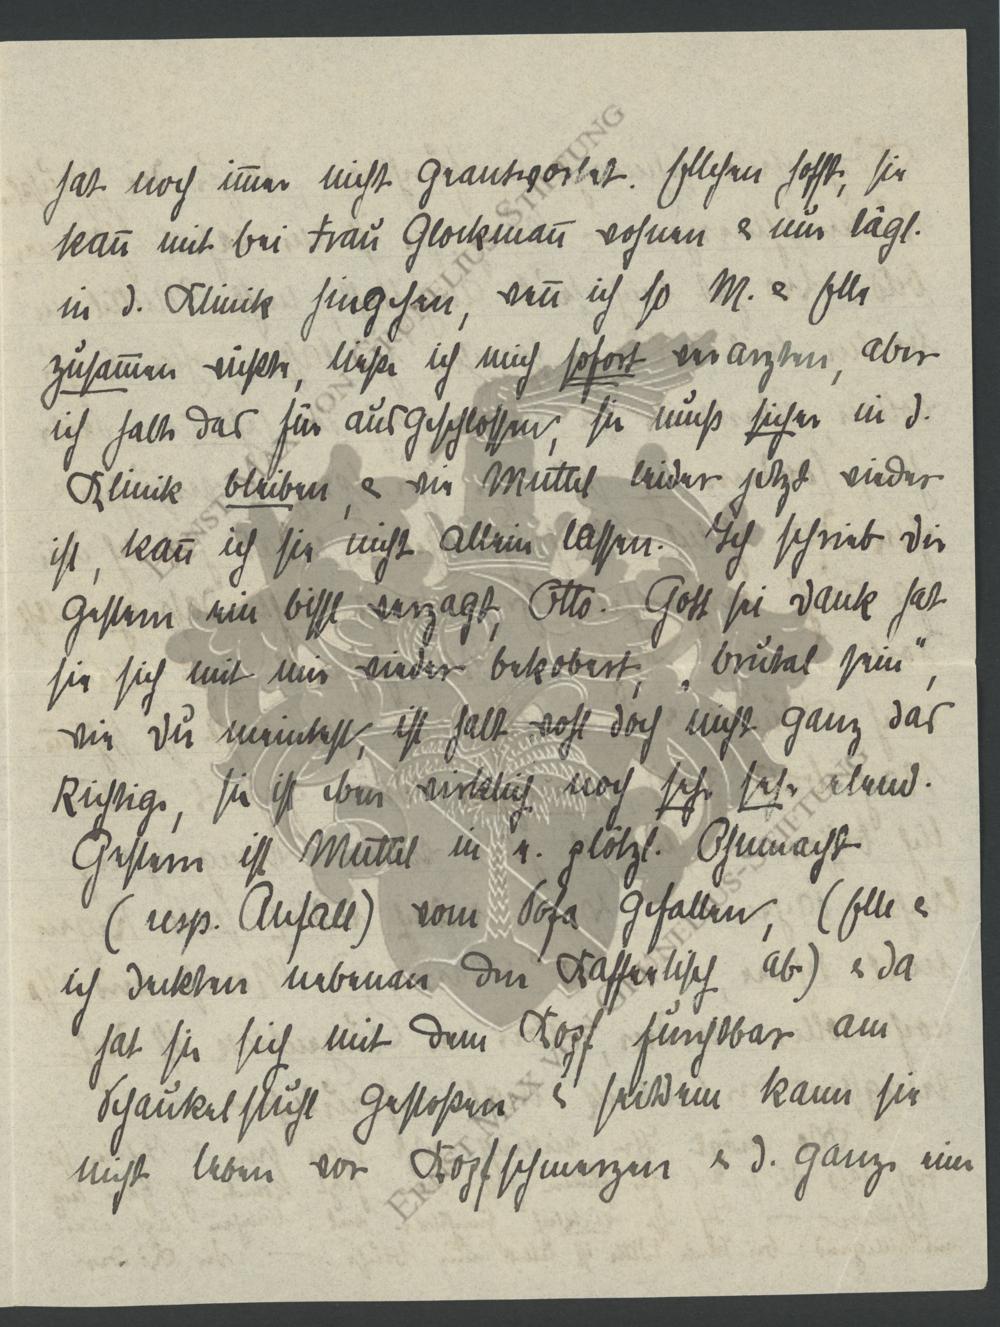 hat noch im̅er nicht geantwortet. Ellchen hofft, sie
kan̅ mit bei Frau Glockman̅ wohnen & nur tägl.
in d. Klinik hingehen, wen̅ ich so M. & Elle
zusam̅en wüßte, ließe ich mich sofort verarzten, aber
ich halte das für ausgeschlossen, sie muß sicher in d.
Klinik bleiben, & wie Muttel leider jetzt wieder
ist, kan̅ ich sie nicht allein lassen. Ich schrieb dir
gestern ein bissl verzagt, Otto. Gott sei dank hat
sie sich mit mir wieder bekobert, „brutal sein“,
wie du meintest, ist halt wohl doch nicht ganz das
Richtige, sie ist eben wirklich noch sehr sehr elend.
Gestern ist Muttel in e. plötzl. Ohnmacht
(resp. Anfall) vom Sofa gefallen, (Elle &
ich deckten nebenan den Kaffeetisch ab) & da
hat sie sich mit dem Kopf furchtbar am
Schaukelstuhl gestoßen & seitdem kann sie
nicht leben vor Kopfschmerzen & d. ganze eine
ERNST MAX VON GRUNELIUS-STIFTUNG
ERNST MAX VON GRUNELIUS-STIFTUNG